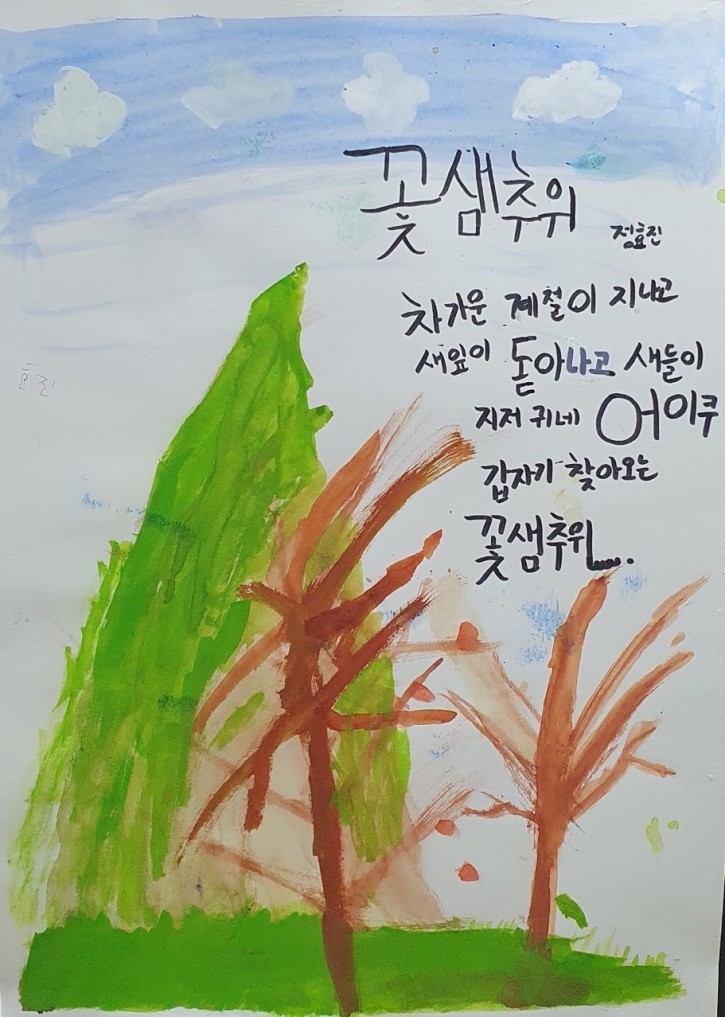 꽃샘추위
정효진
차가운 계절이 지나고
새잎이 돋아나고 새들이
지저귀네 어이쿠
갑자기 찾아오는
꽃샘추위.....
효진